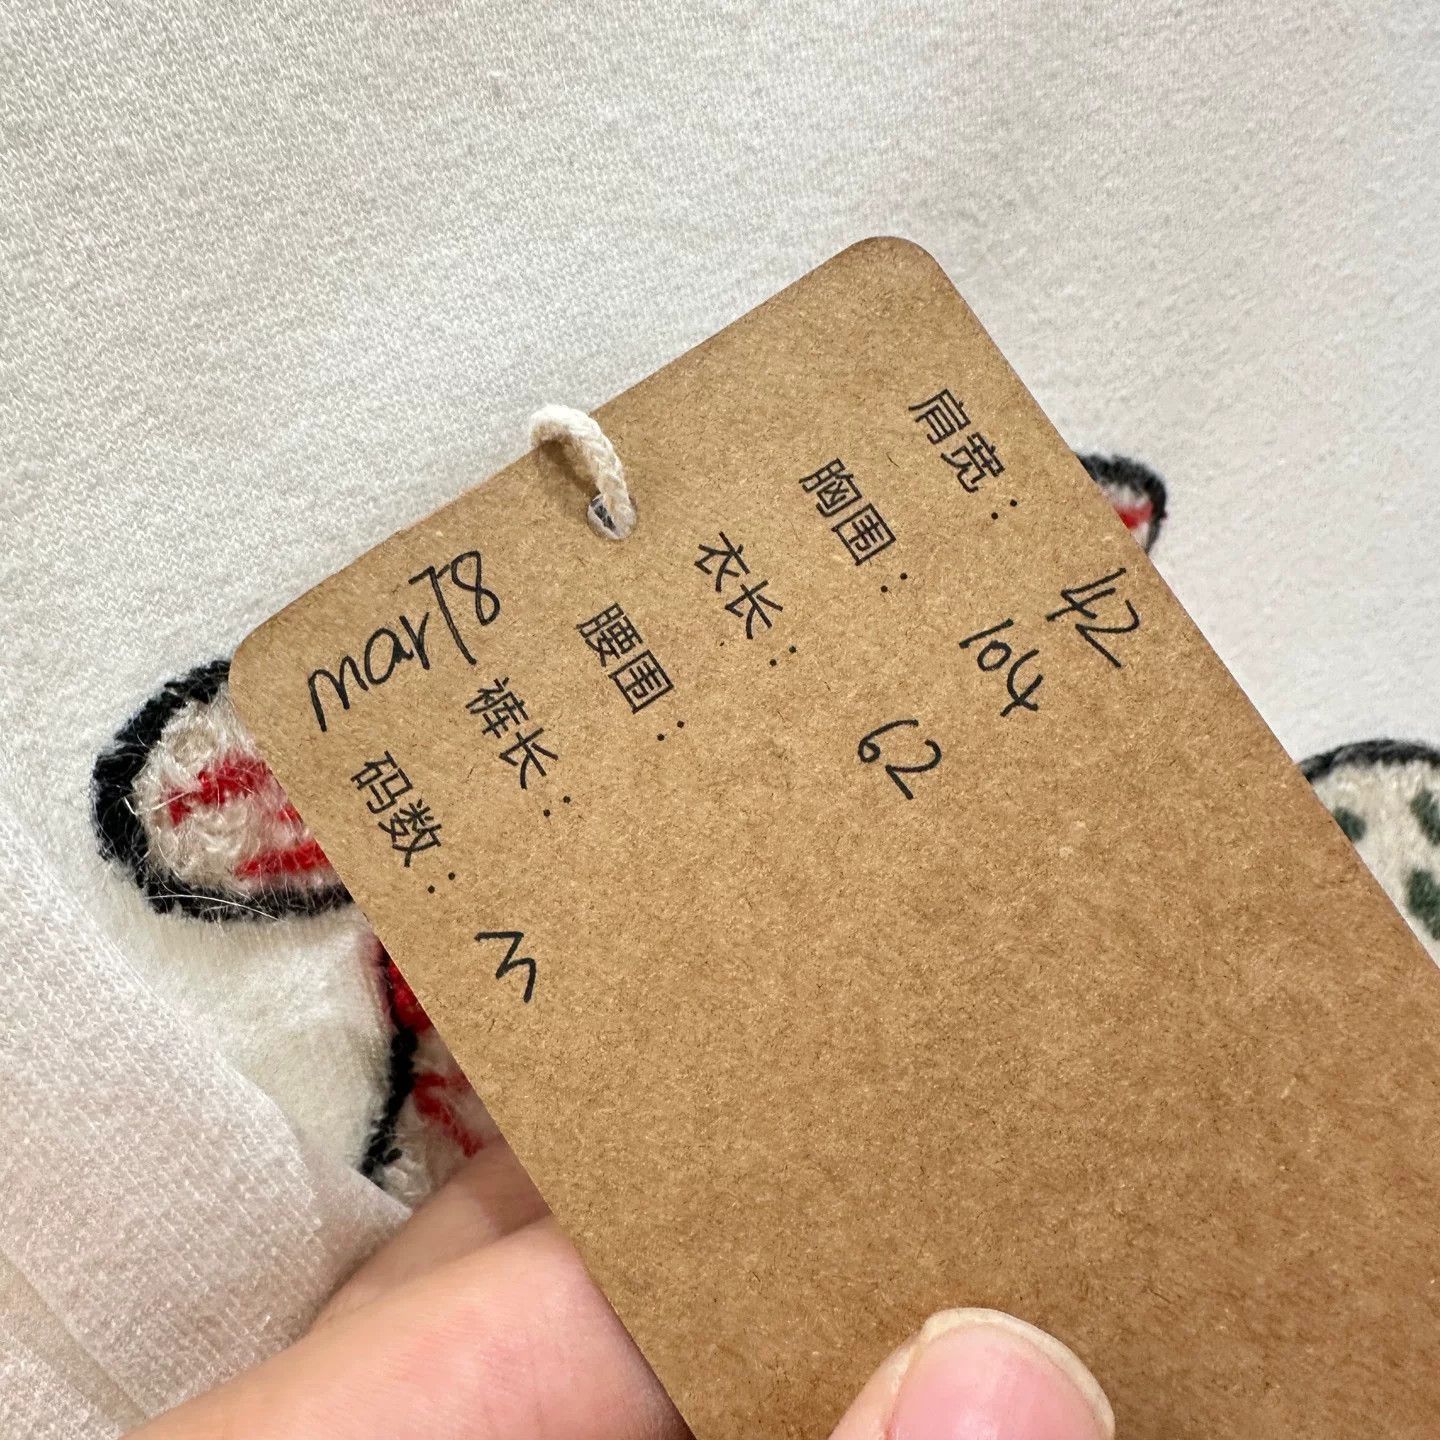 肩宽： 42
胸围： 104
衣长： 62
腰围：
裤长：
码数： M